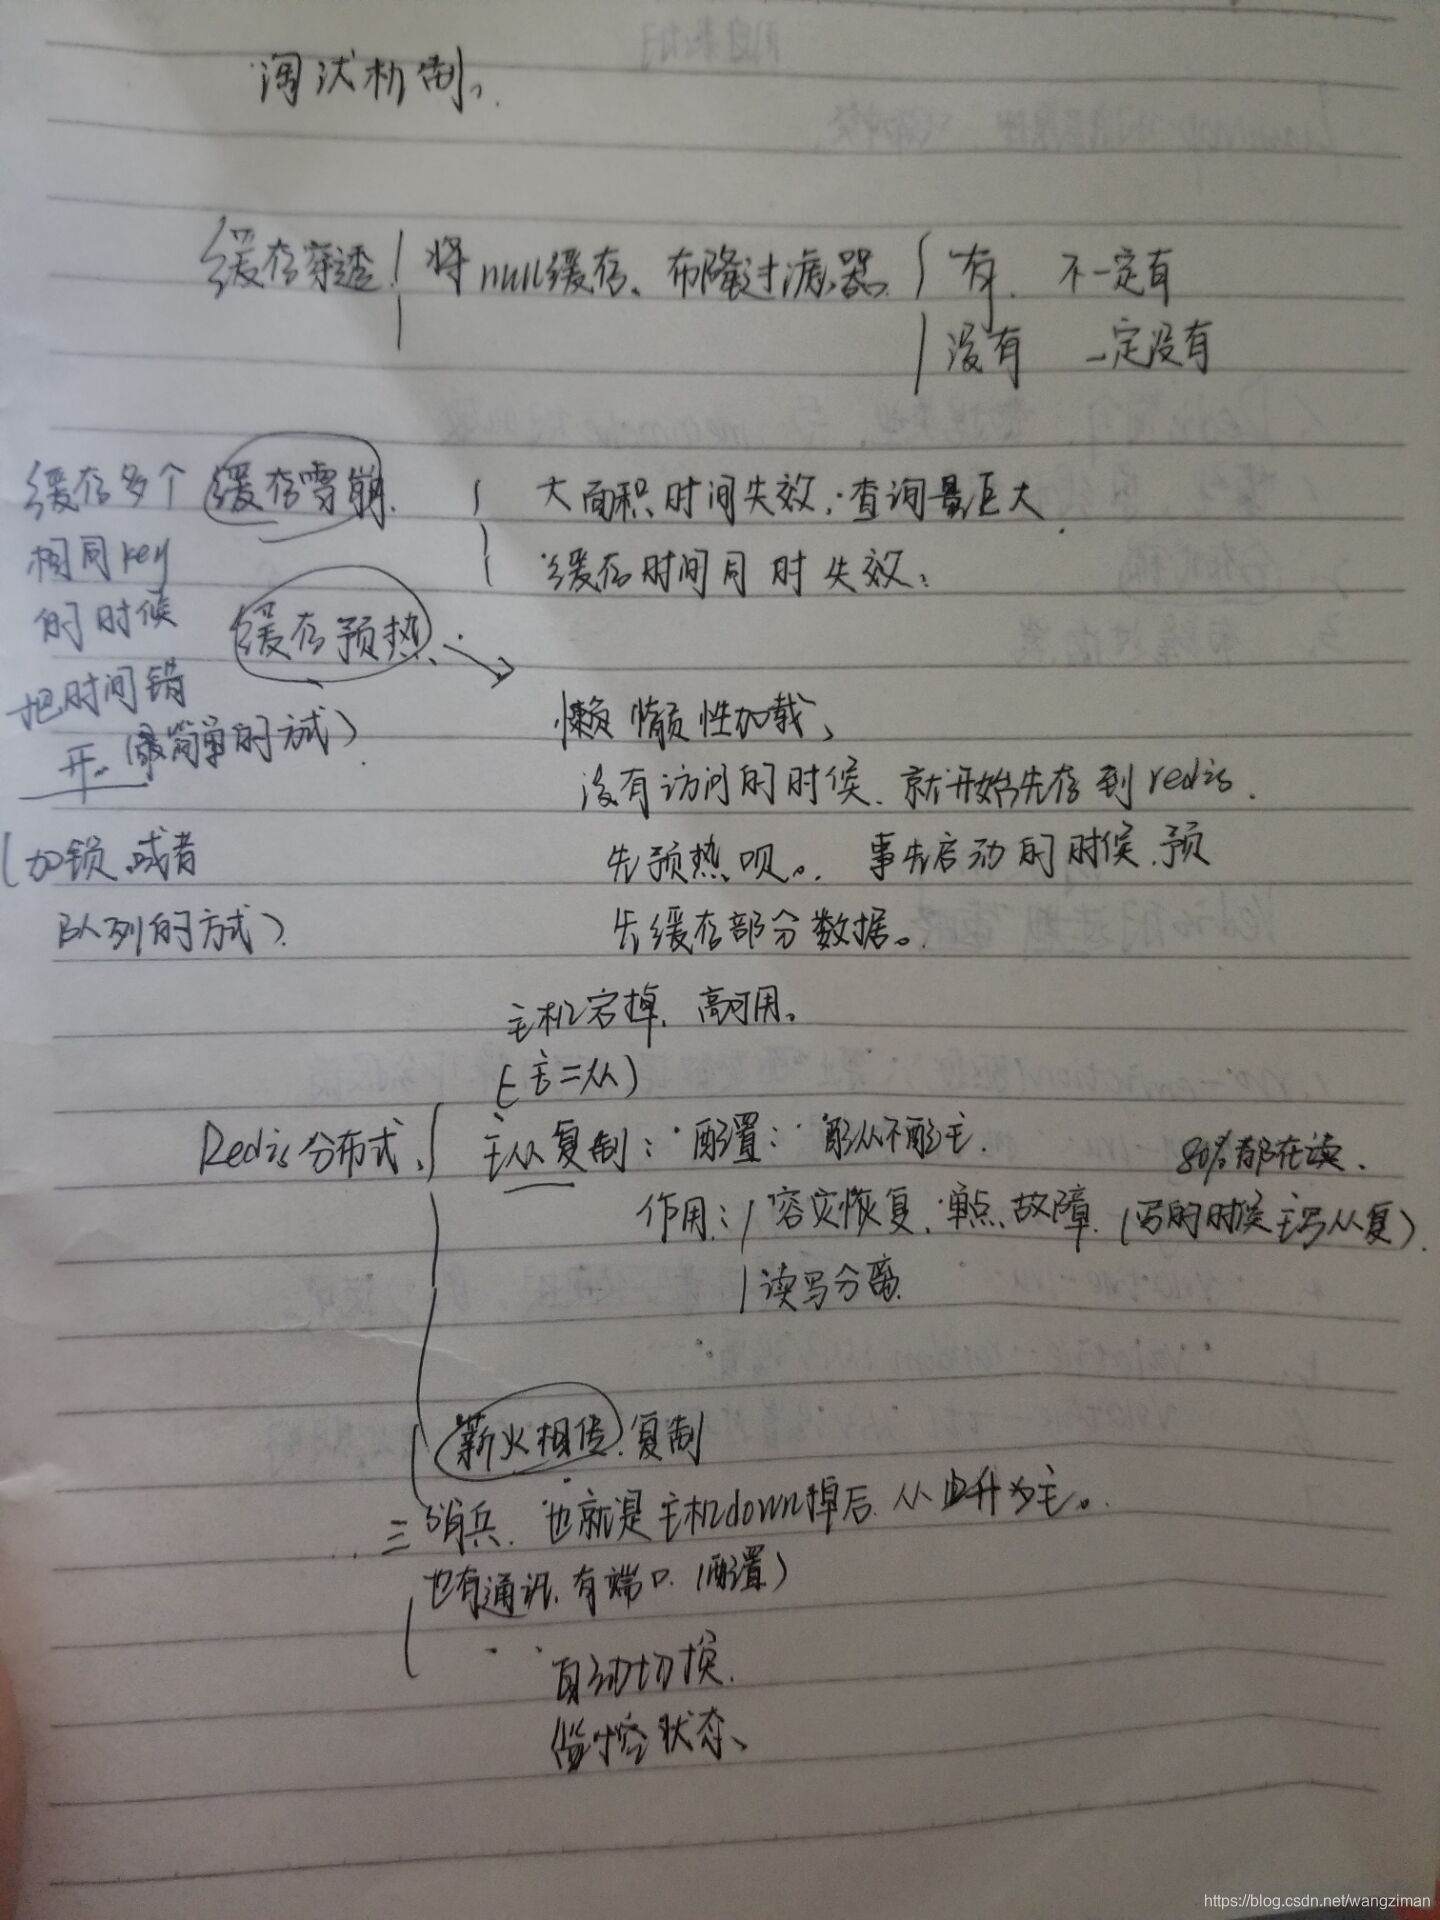 淘汰机制。
缓存穿透 将null缓存、布隆过滤器 有. 不一定有
没有 一定没有
缓存雪崩. 大面积时间失效,查询量巨大
缓存时间同时失效:
缓存多个
相同key
的时候
把时间错
开. (最简单的方式)
(加锁.或者
队列的方式)
缓存预热.
懒惰性加载、
没有访问的时候.就开始先存到redis.
先预热呗。. 事先启动的时候.预
先缓存部分数据。
主机宕掉. 高可用。
(一主二从)
Redis分布式. 主从复制: 配置: 配从不配主. 80%都在读.
作用: 容灾恢复.单点.故障. (写的时候主写从复).
读写分离
薪火相传.复制
哨兵. 也就是主机down掉后.从提升为主。
也有通讯.有端口.(配置)
自动切换.
监控状态、
https://blog.csdn.net/wangziman